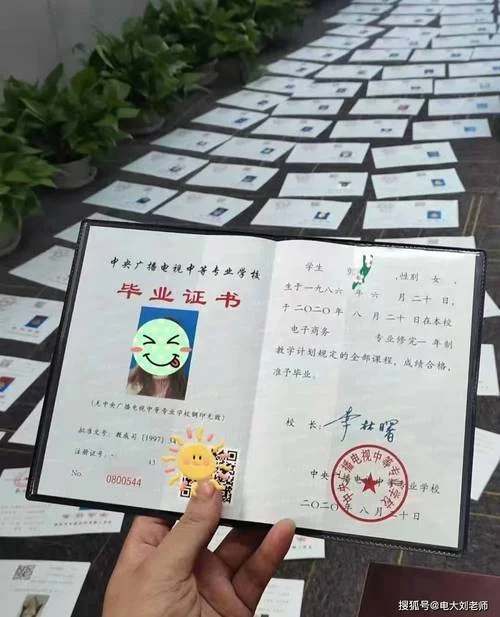 中央广播电视中等专业学校
毕业证书
(无中央广播电视中等专业学校钢印无效)
批准文号：教成司 [1997]
注册证号：
No. 0800544
学生
,性别 女，
生于一九八六年 六 月二十日，
于二〇二〇年 八 月二十日在本校
电子商务 专业修完一年制
教学计划规定的全部课程，成绩合格，
准予毕业。
校 长：
中央广播电视中等专业学校
二〇二〇年 八 月二十日
中央广播电视中等专业学校
搜狐号@电大刘老师